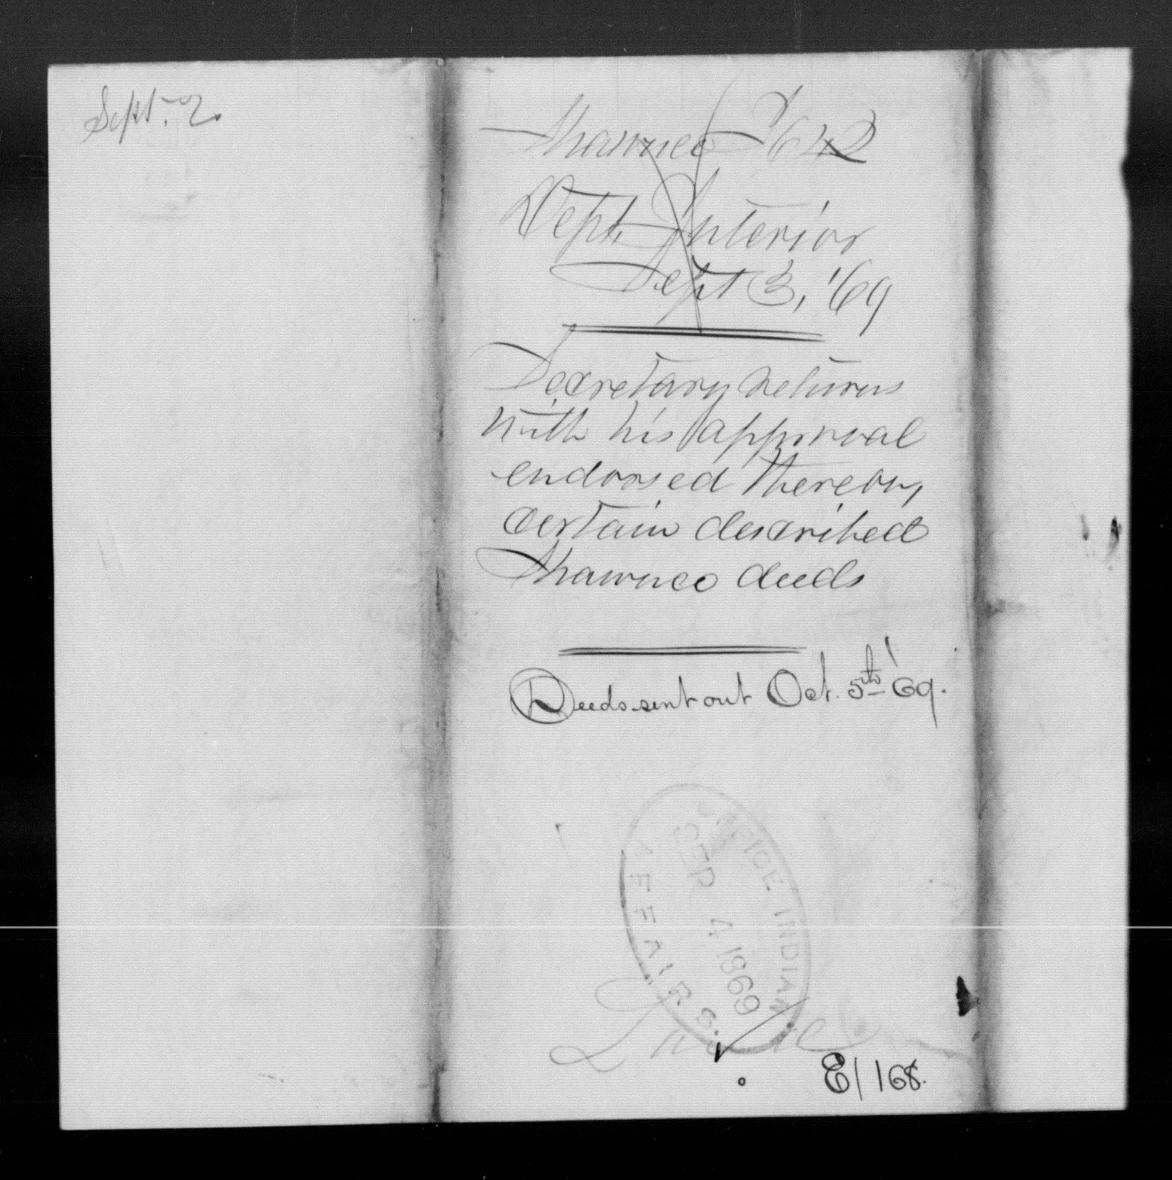 Sept. 2.
Shawnee I 642
Dept. Interior
Sept 3, '69
Secretary returns
with his approval
endorsed thereon,
certain described
Shawnee deeds
Deeds sent out Oct. 5th '69.
OFFICE INDIAN AFFAIRS.
SEP 4 1869
E/168.